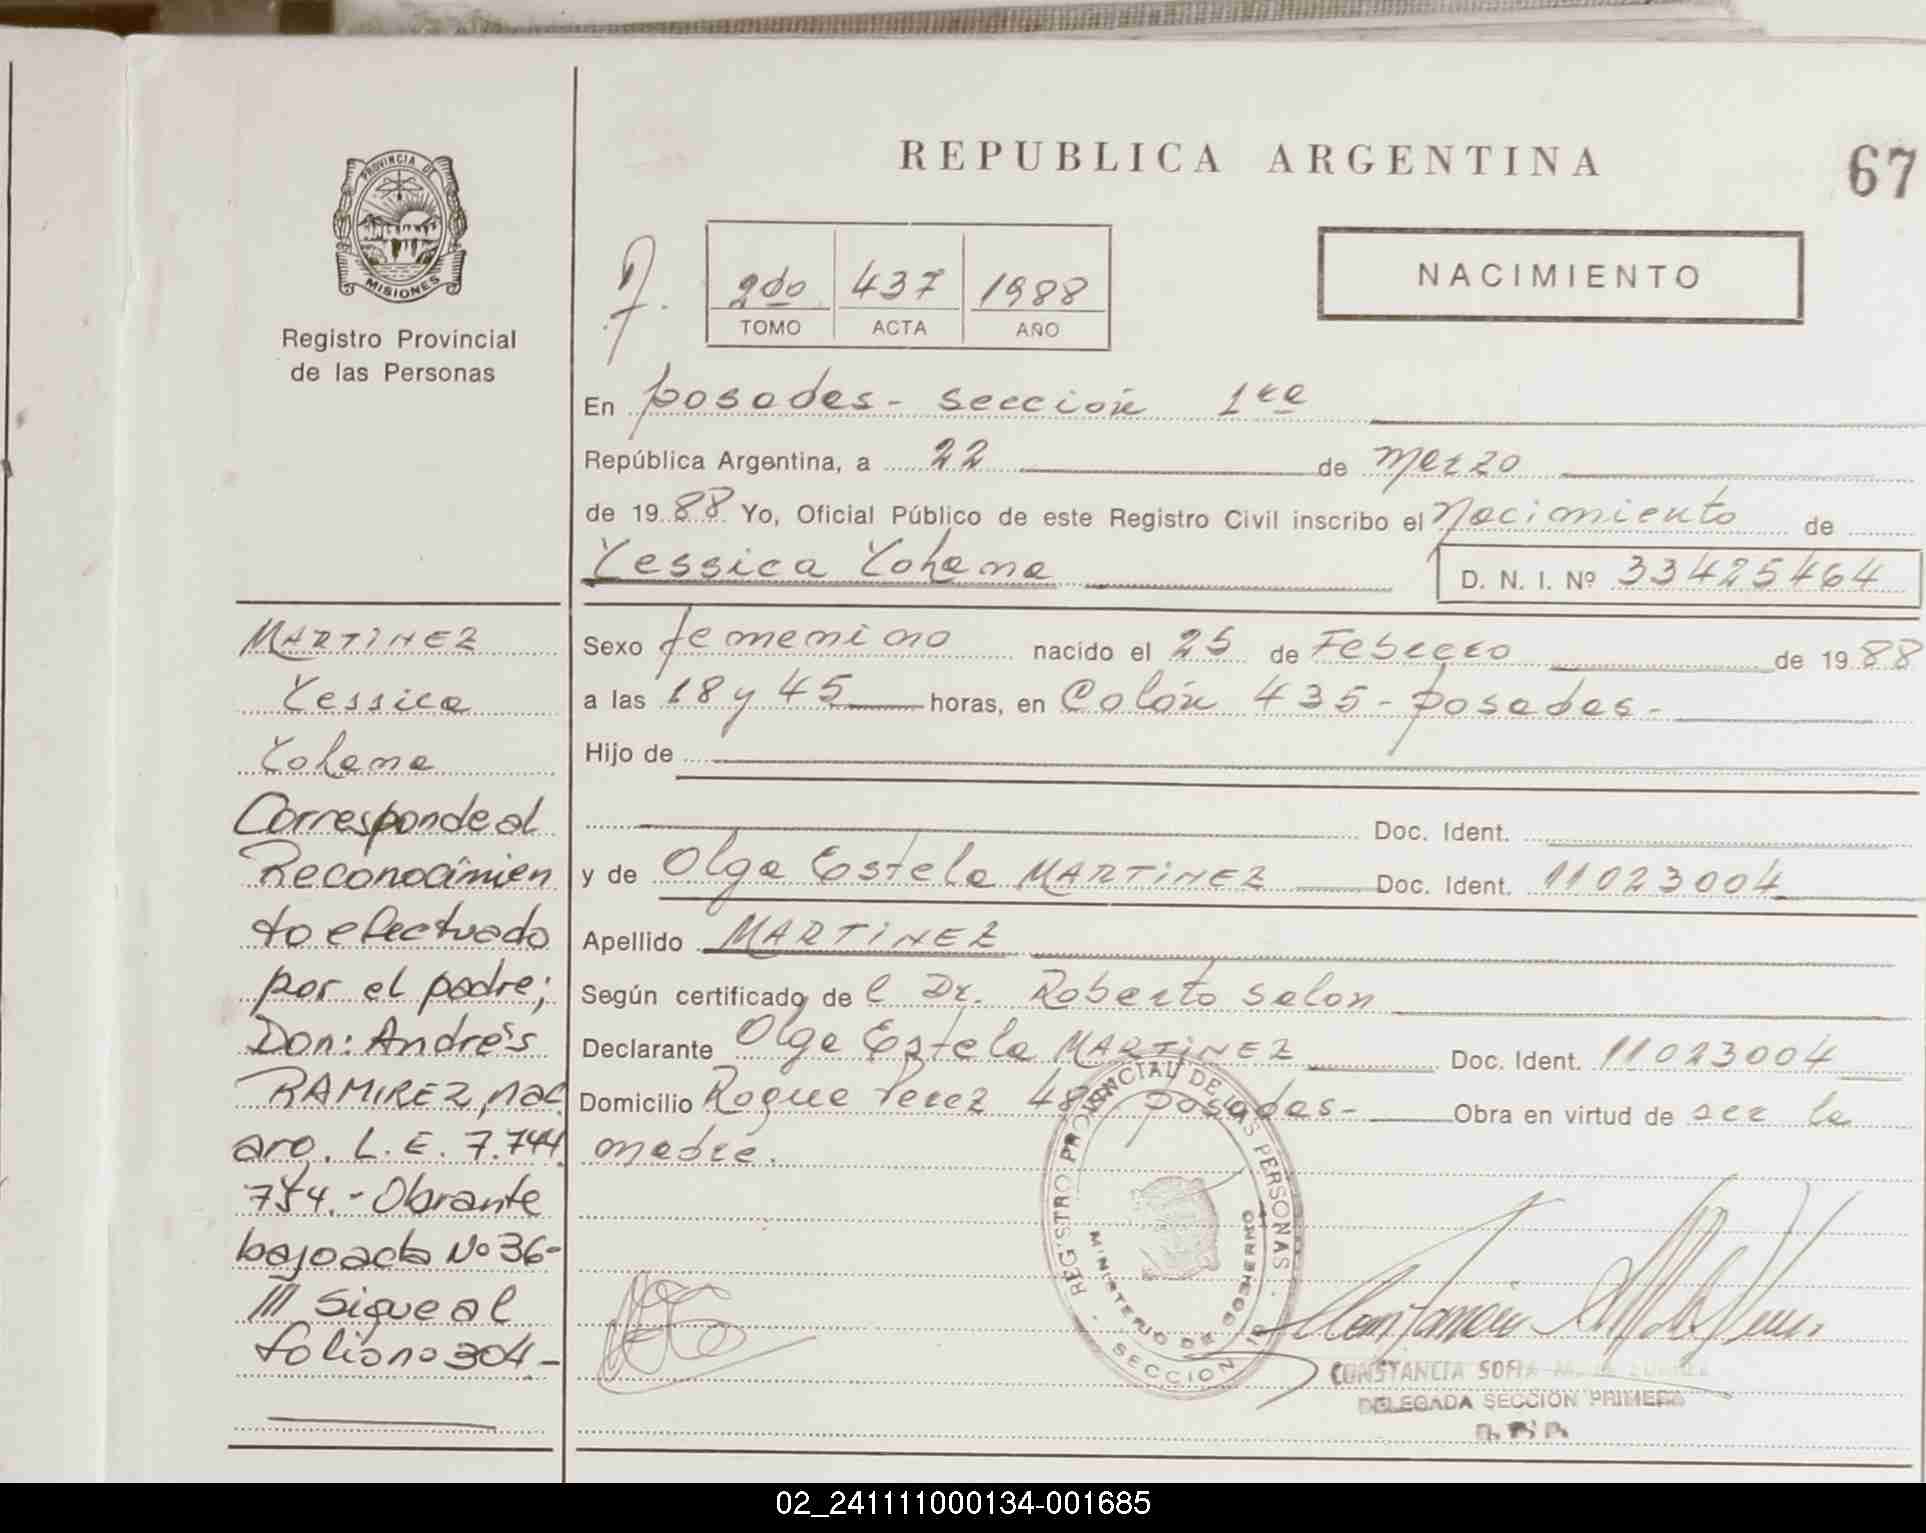 REPUBLICA ARGENTINA
67
PROVINCIA DE
MISIONES
Registro Provincial
de las Personas
2do 437 1988
TOMO ACTA AÑO
NACIMIENTO
En posadas - sección 1ra
República Argentina, a 22 de marzo
de 1988 Yo, Oficial Público de este Registro Civil inscribo el Nacimiento de
Yessica Yohana
D. N. I. Nº 33425464
Sexo femenino nacido el 25 de Febrero de 1988
a las 18 y 45 horas, en Colón 435 - posadas -
Hijo de
Doc. Ident.
y de Olga Estela MARTINEZ Doc. Ident. 11023004
Apellido MARTINEZ
Según certificado de l Dr. Roberto Salon
Declarante Olga Estela MARTINEZ Doc. Ident. 11023004
Domicilio Roque Perez posadas - Obra en virtud de ser la
madre.
MARTINEZ
Yessica
Yohana
Corresponde al
Reconocimien
to efectuado
por el padre;
Don: Andrés
RAMIREZ, nac
aro. L. E. 7.744.
754. - Obrante
bajo acta Nº 36-
III Sigue al
folio no 304 -
REGISTRO PROVINCIAL DE LAS PERSONAS
MINISTERIO DE GOBIERNO
SECCION
CONSTANCIA SOFIA
DELEGADA SECCION PRIMERA
02_241111000134-001685